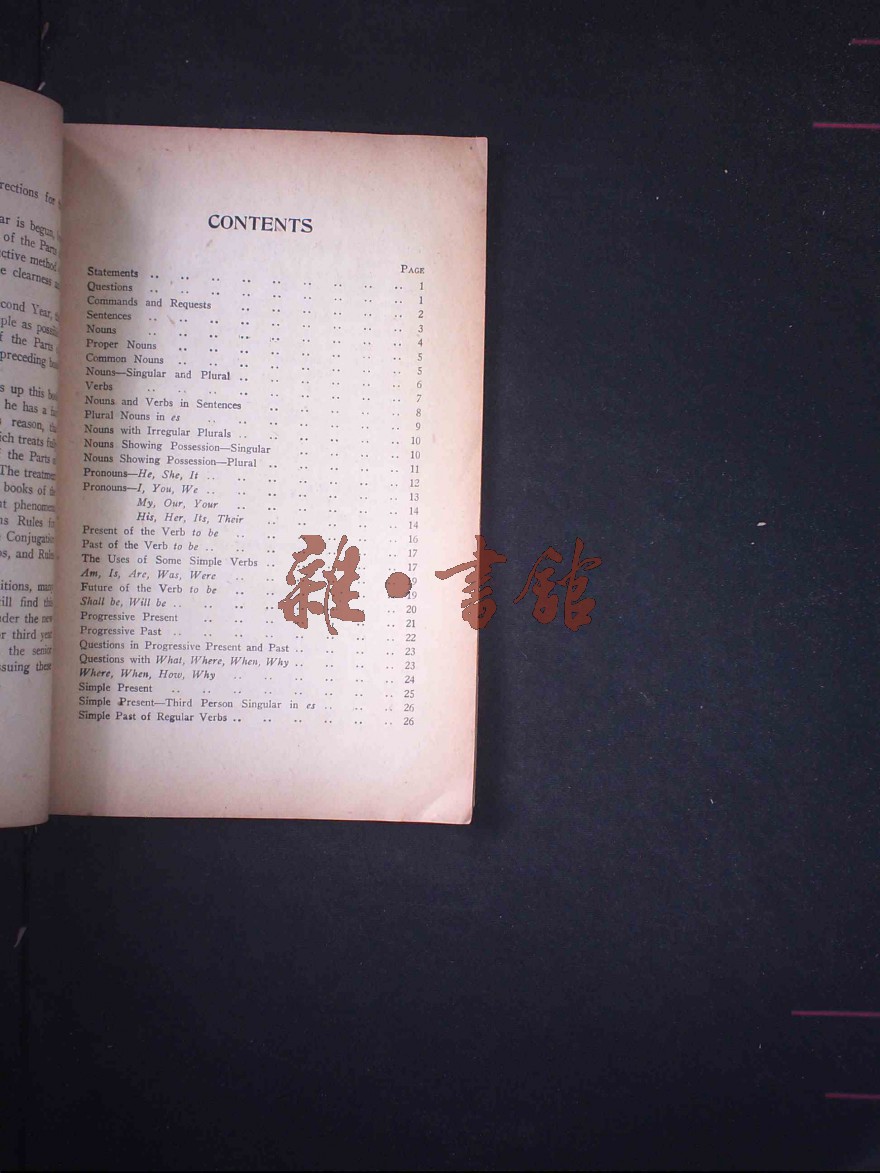 rections for
ar is begun,
of the Parts
ctive method
e clearness
cond Year,
ple as possible
f the Parts
preceding
s up this
he has a
reason,
ich treats
the Parts
The treatment
books of
t phenomena
ns Rules for
Conjugation
s, and Rules
itions, many
ill find this
der the new
r third year
the senior
suing these
CONTENTS
PAGE
Statements .. .. .. .. .. .. .. .. .. 1
Questions .. .. .. .. .. .. .. .. .. 1
Commands and Requests .. .. .. .. .. .. 2
Sentences .. .. .. .. .. .. .. .. .. 3
Nouns .. .. .. .. .. .. .. .. .. 4
Proper Nouns .. .. .. .. .. .. .. .. 5
Common Nouns .. .. .. .. .. .. .. .. 5
Nouns—Singular and Plural .. .. .. .. .. .. 6
Verbs .. .. .. .. .. .. .. .. .. 7
Nouns and Verbs in Sentences .. .. .. .. .. 8
Plural Nouns in es .. .. .. .. .. .. .. 9
Nouns with Irregular Plurals .. .. .. .. .. .. 10
Nouns Showing Possession—Singular .. .. .. .. 10
Nouns Showing Possession—Plural .. .. .. .. .. 11
Pronouns—He, She, It .. .. .. .. .. .. .. 12
Pronouns—I, You, We .. .. .. .. .. .. .. 13
My, Our, Your .. .. .. .. .. .. 14
His, Her, Its, Their .. .. .. .. .. 14
Present of the Verb to be .. .. .. .. .. .. 16
Past of the Verb to be .. .. .. .. .. .. .. 17
The Uses of Some Simple Verbs .. .. .. .. .. 17
Am, Is, Are, Was, Were .. .. .. .. .. .. 19
Future of the Verb to be .. .. .. .. .. .. 19
Shall be, Will be .. .. .. .. .. .. .. .. 20
Progressive Present .. .. .. .. .. .. .. 21
Progressive Past .. .. .. .. .. .. .. .. 22
Questions in Progressive Present and Past .. .. .. .. 23
Questions with What, Where, When, Why .. .. .. .. 23
Where, When, How, Why .. .. .. .. .. .. 24
Simple Present .. .. .. .. .. .. .. .. 25
Simple Present—Third Person Singular in es .. .. .. 26
Simple Past of Regular Verbs .. .. .. .. .. .. 26
雜·書館